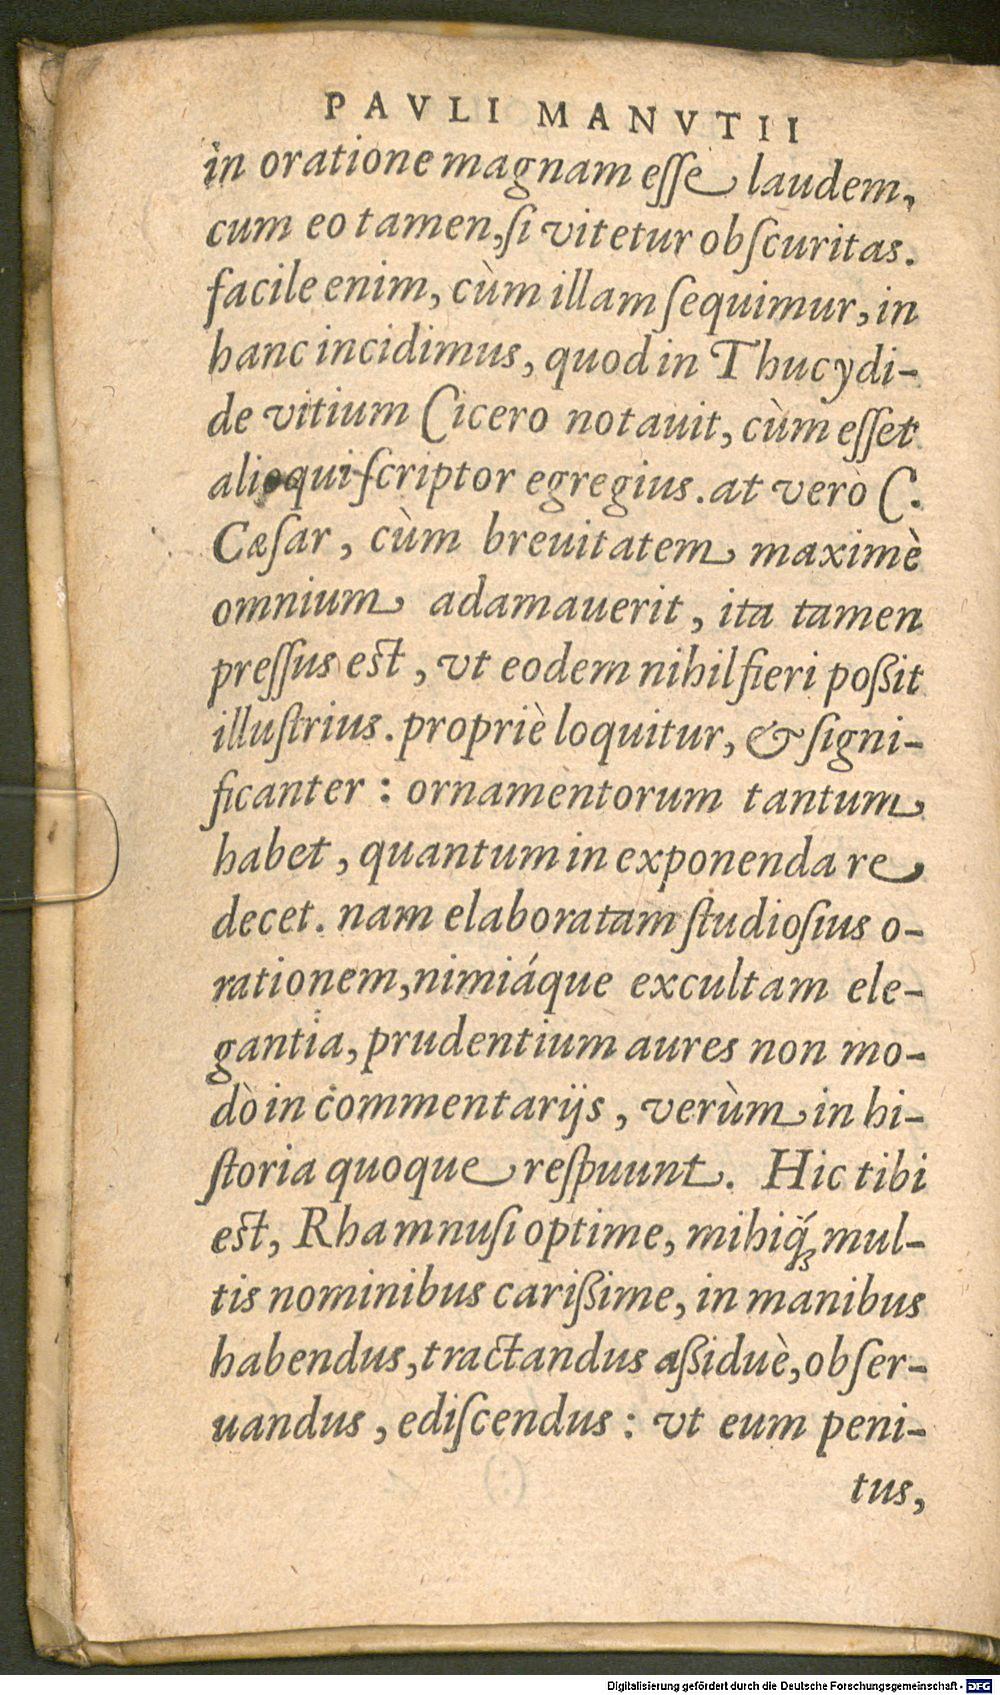 PAVLI MANVTII
in oratione magnam eſſe laudem,
cum eo tamen, ſi vitetur obſcuritas.
facile enim, cùm illam ſequimur, in
hanc incidimus, quod in Thucydi-
de vitium Cicero notauit, cùm eſſet
alioqui ſcriptor egregius. at verò C.
Cæſar, cùm breuitatem maximè
omnium adamauerit, ita tamen
preſſus est, vt eodem nihil fieri poßit
illuſtrius. propriè loquitur, & ſigni-
ficanter: ornamentorum tantum
habet, quantum in exponenda re
decet. nam elaboratam ſtudioſius o-
rationem, nimiáque excultam ele-
gantia, prudentium aures non mo-
dò in commentarijs, verùm in hi-
ſtoria quoque reſpuunt. Hic tibi
est, Rhamnuſi optime, mihiq́; mul-
tis nominibus carißime, in manibus
habendus, tractandus aßiduè, obſer-
uandus, ediſcendus: vt eum peni-
tus,
Digitalisierung gefördert durch die Deutsche Forschungsgemeinschaft - DFG